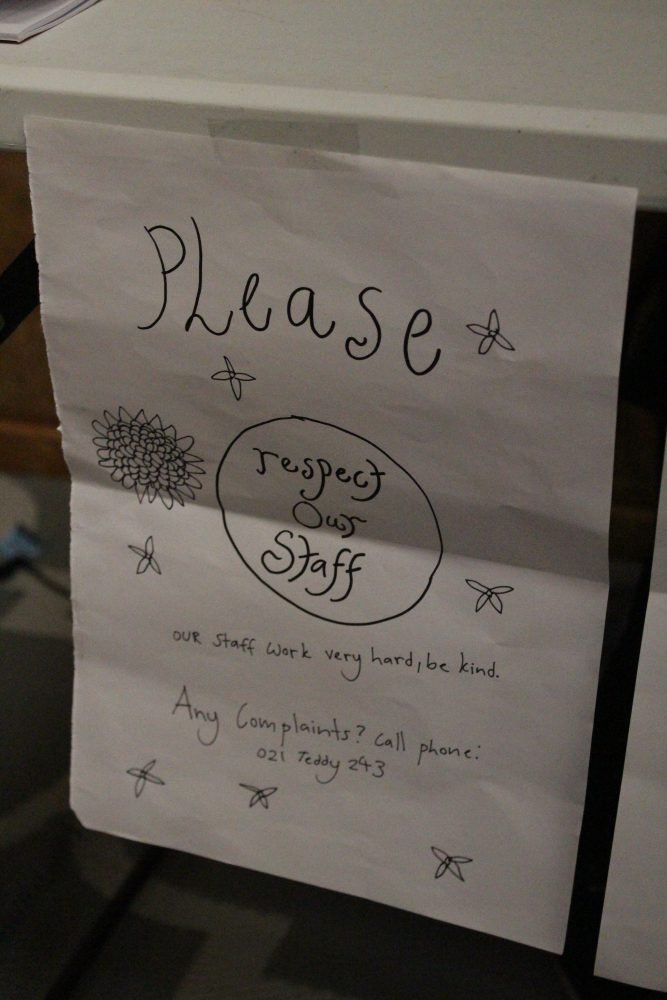 PLease
respect
Our
Staff
OUR Staff work very hard, be kind.
Any Complaints? Call phone:
021 Teddy 243